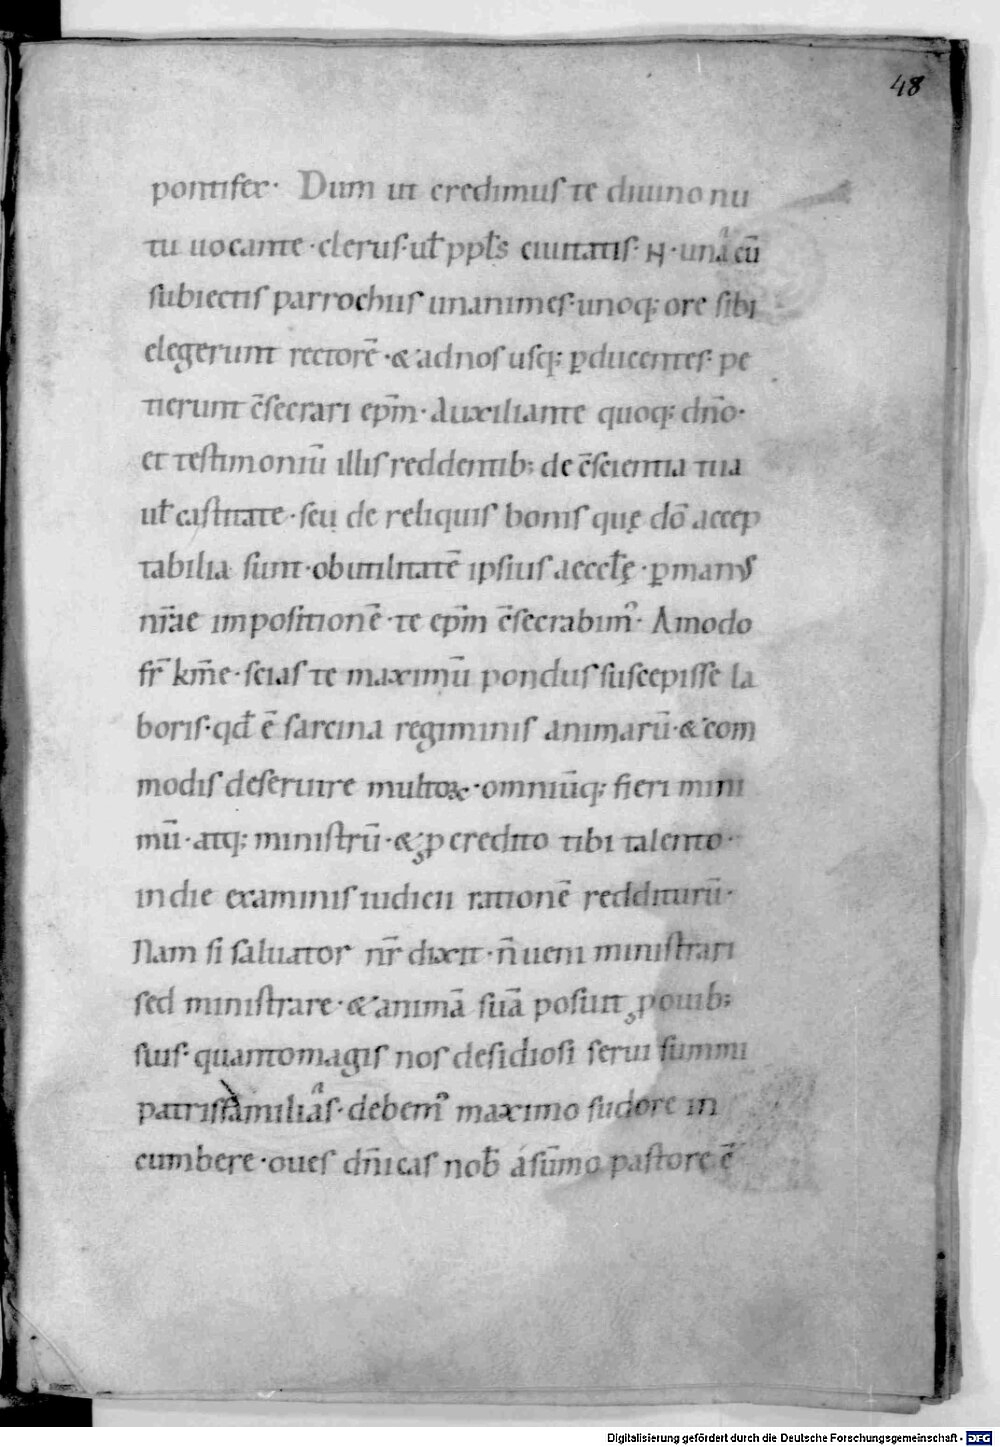 48
pontifex· Dum ut credimus te diuino nu
tu uocante· clerus· ul̄ ppl̄s ciuitatis· N· una cū
subiectis parrochiis unanimes· unoq; ore sibi
elegerunt rectorē· & ad nos usq; ꝑducentes· pe
tierunt c̄secrari ep̄m· Auxiliante quoq; dn̄o·
et testimoniū illis reddentib; de c̄scientia tua
ul̄ castitate· seu de reliquis bonis quę dō accep
tabilia sunt· ob utilitatē ipsius aeccl̄ę· ꝑ manus
nr̄ae impositionē· te ep̄m c̄secrabim᷒· Amodo
fr̄ km̄e· scias te maximū pondus suscepisse la
boris· qd̄ ē sarcina regiminis animarū· & com
modis deseruire multoꝝ· omniūq; fieri mini
mū· atq; ministrū· & ꝓ credito tibi talento·
in die examinis iudicii rationē redditurū·
Nam si saluator nr̄ dixit· n̄ ueni ministrari
sed ministrare· & animā suā posuit ꝓ ouib;
suis· quanto magis nos desidiosi serui summi
patris familias· debem᷒ maximo sudore in
cumbere· oues dn̄icas nob̄ a sūmo pastore c̄
Digitalisierung gefördert durch die Deutsche Forschungsgemeinschaft - DFG